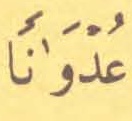 عُدْوَانًا